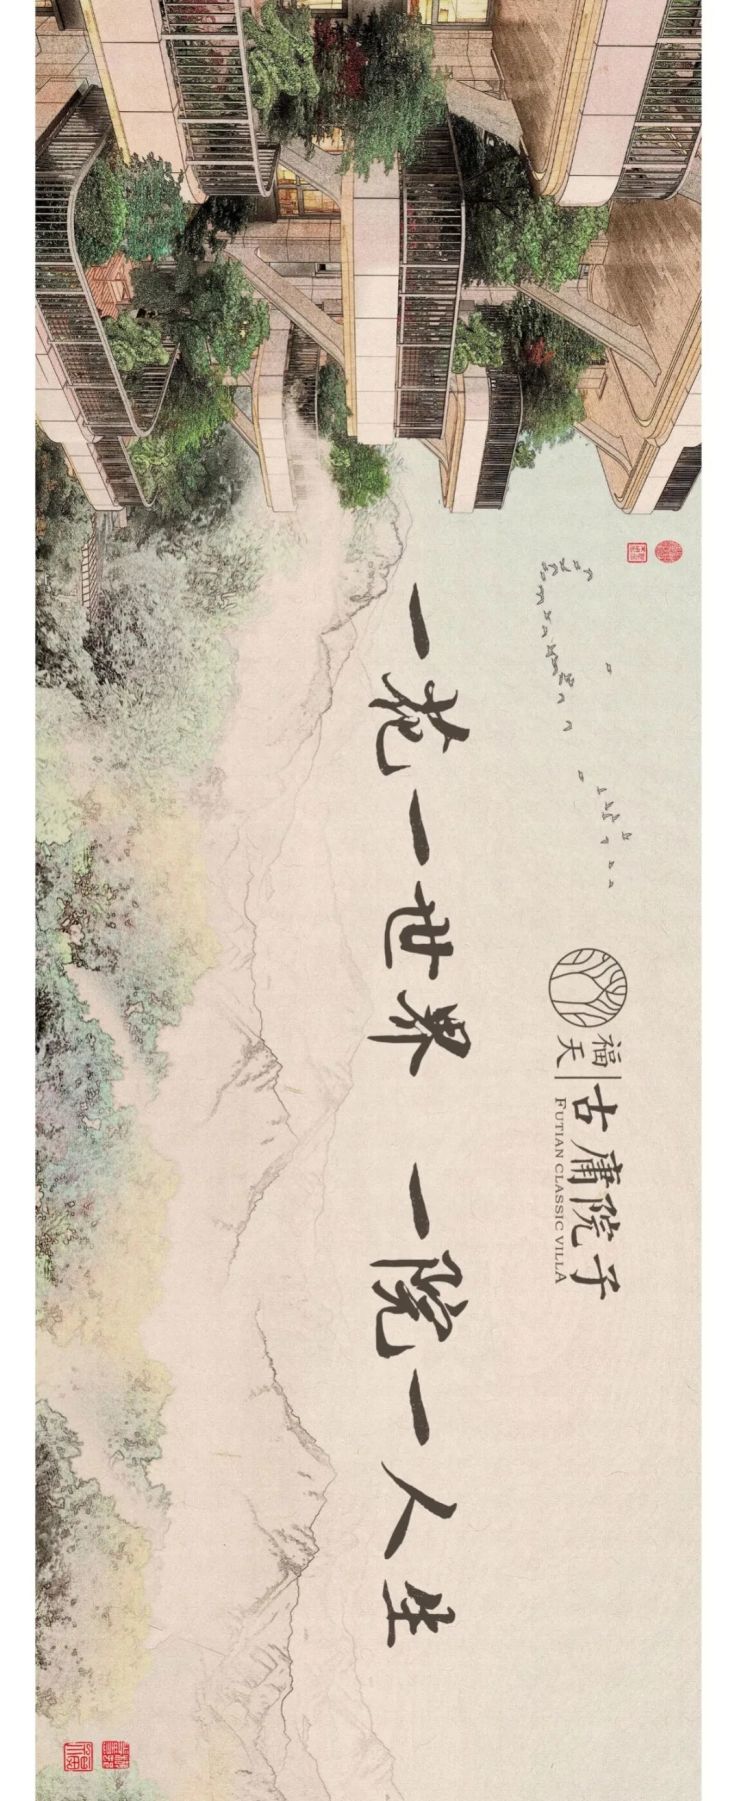 福天
古庸院子
FUTIAN CLASSIC VILLA
一花一世界 一院一人生